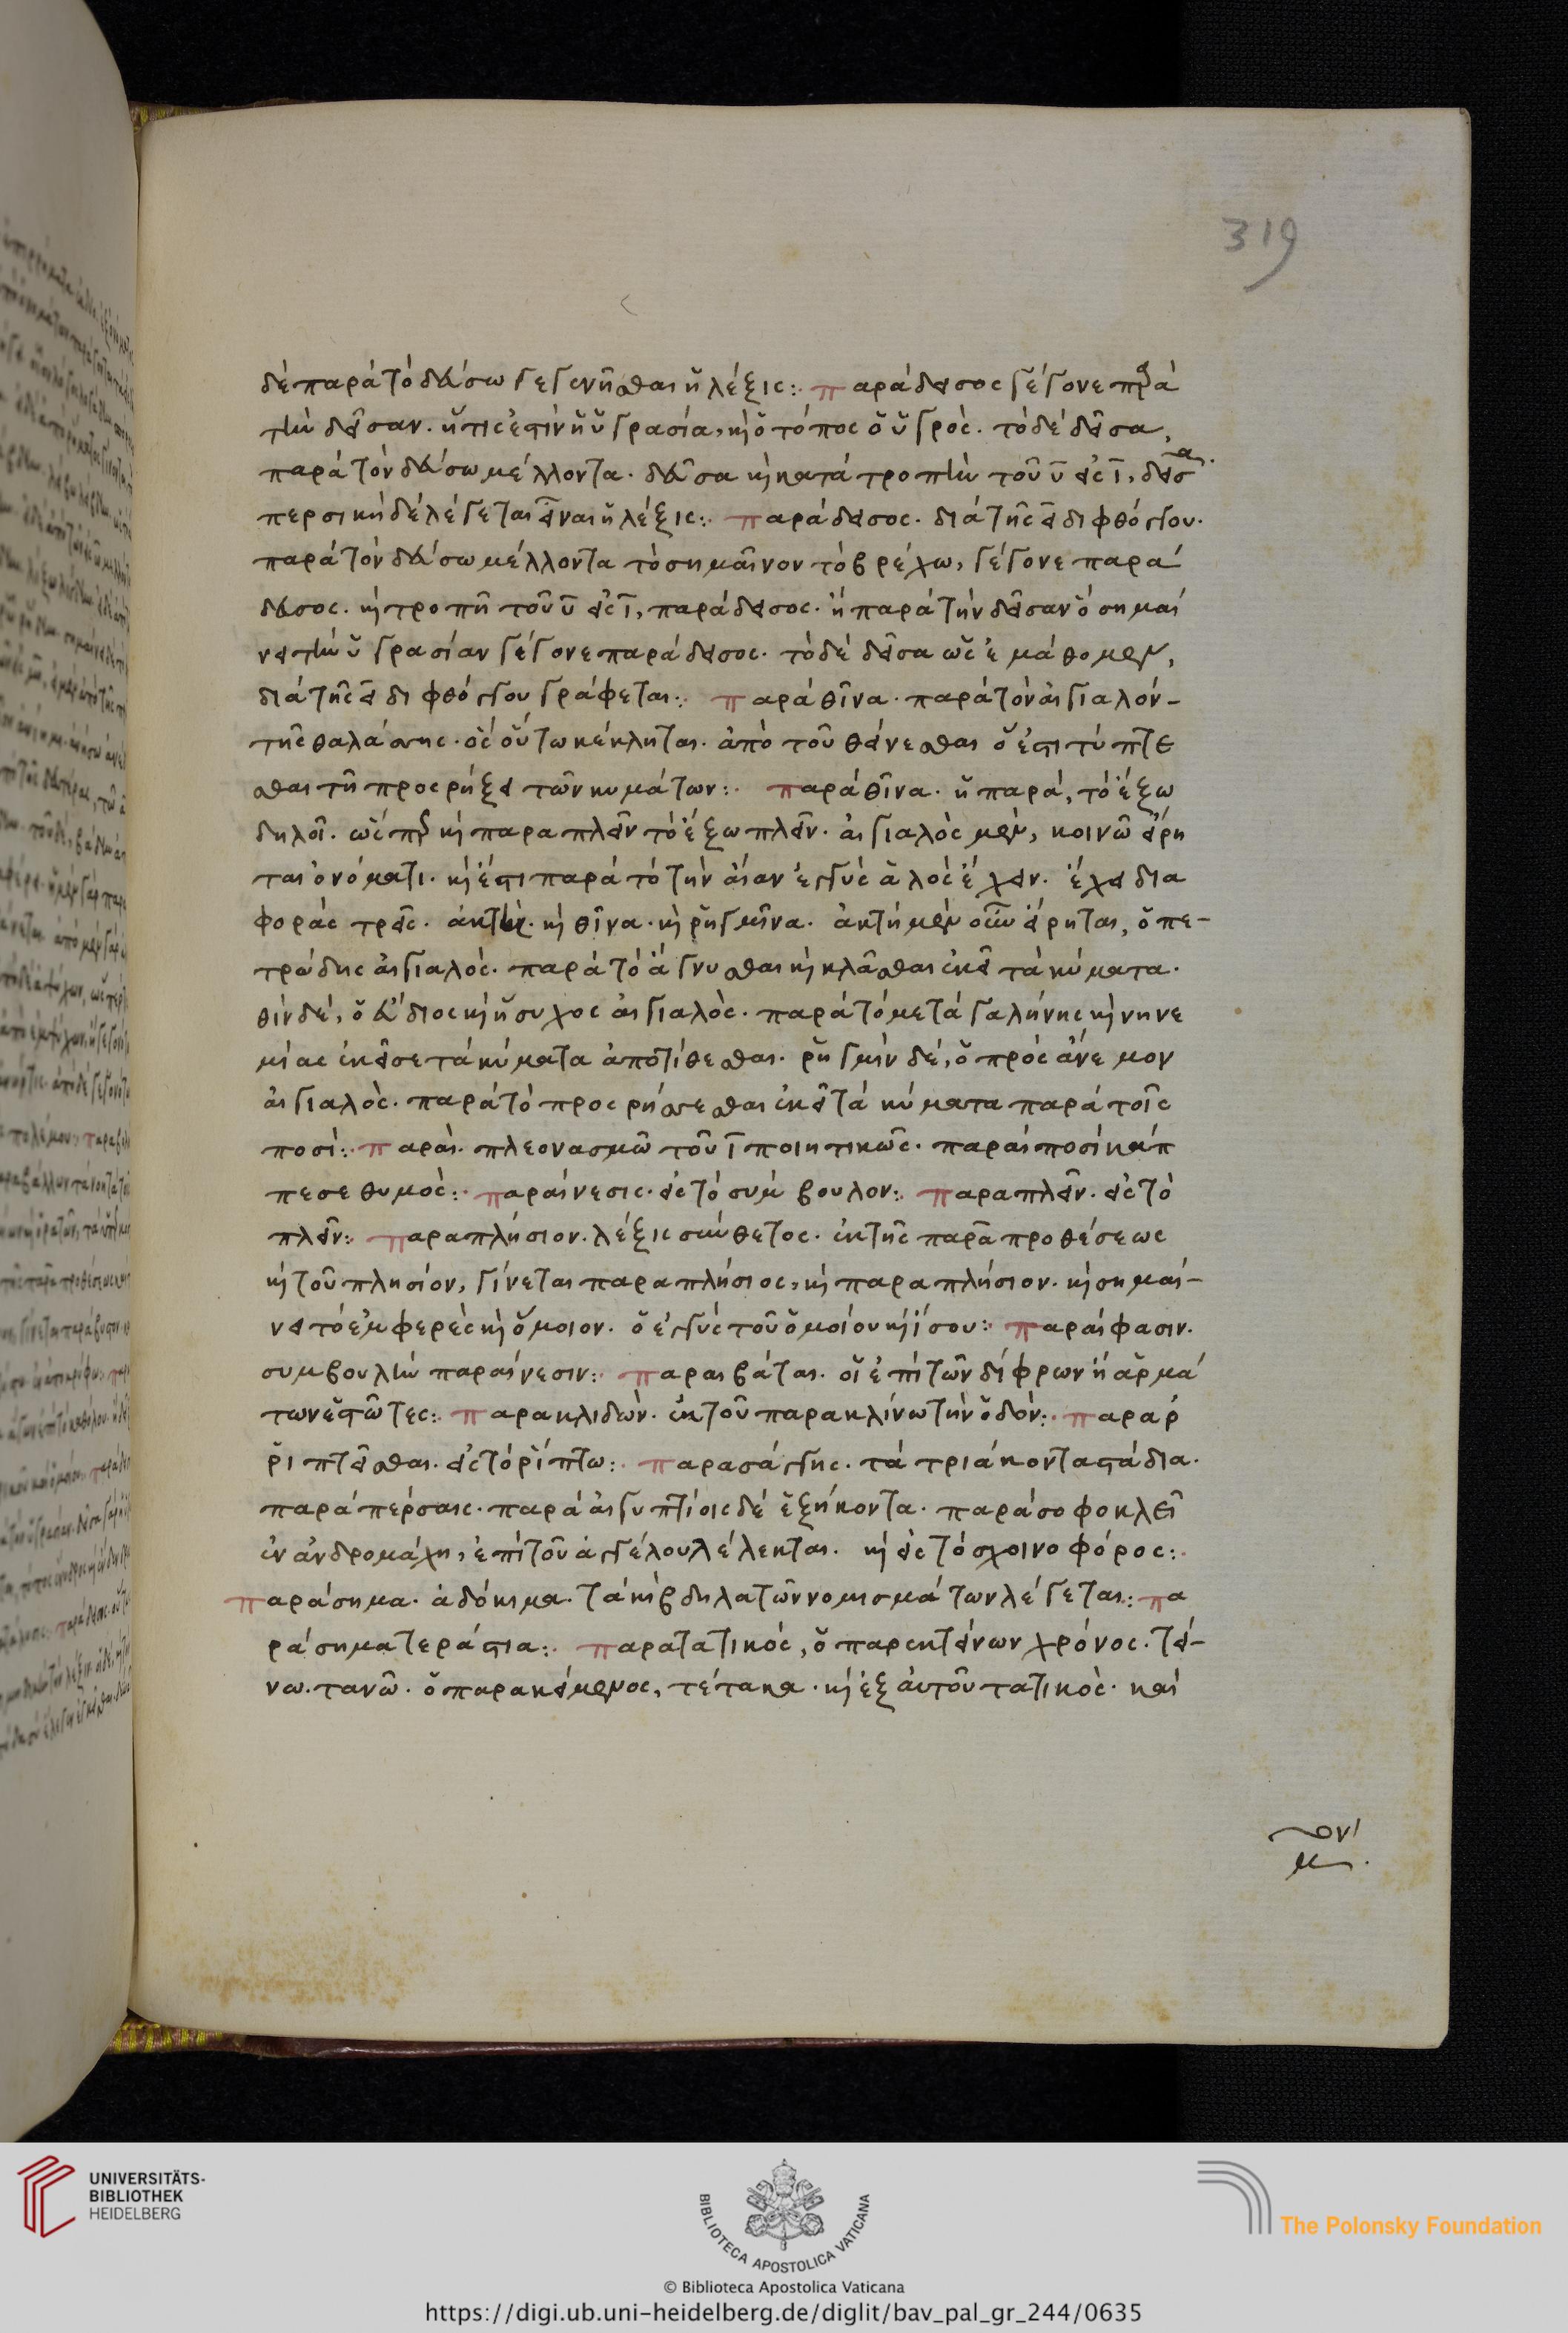 319
δὲ παρὰ τὸ δεύσω γεγενῆσθαι ἡ λέξις: παράδεισος γέγονε παρὰ
τὴν δεῖσαν. ἥτις ἐστὶν ἡ ὑγρασία, καὶ ὁ τόπος ὁ ὑγρός. τὸ δὲ δεῖσα,
παρὰ τὸν δεύσω μέλλοντα. δεῦσα καὶ κατὰ τροπὴν τοῦ ῡ εἰς ῑ, δεῖσα.
περσικὴ δὲ λέγεται εἶναι ἡ λέξις: παράδεισος. διὰ τῆς ει διφθόγγου.
παρὰ τὸν δεύσω μέλλοντα τὸ σημαῖνον τὸ βρέχω, γέγονε παρά
δευσος. καὶ τροπῇ τοῦ ῡ εἰς ῑ, παράδεισος. ἢ παρὰ τὴν δεῖσαν ὃ σημαί
νει τὴν ὑγρασίαν γέγονε παράδεισος. τὸ δὲ δεῖσα ὡς ἐμάθομεν,
διὰ τῆς ει διφθόγγου γράφεται: παρὰ θῖνα. παρὰ τὸν αἰγιαλόν-
τῆς θαλάσσης. ὃς οὕτω κέκληται. ἀπὸ τοῦ θείνεσθαι ὅ ἐστι τύπτε
σθαι τῇ προσρήξει τῶν κυμάτων: παρὰ θῖνα. ἡ παρά, τὸ ἔξω
δηλοῖ. ὥσπερ καὶ παραπλεῖν τὸ ἔξω πλεῖν. αἰγιαλὸς μὲν, κοινῶ εἴρη
ται ὀνόματι. καὶ ἔστι παρὰ τὸ τὴν αἶαν ἐγγὺς ἁλὸς ἔχειν. ἔχει δια
φορὰς τρεῖς. ἀκτὴν. καὶ θῖνα. καὶ ῥηγμῖνα. ἀκτὴ μὲν οὖν εἴρηται, ὁ πε-
τρώδης αἰγιαλός. παρὰ τὸ ἄγνυσθαι καὶ κλᾶσθαι ἐκεῖ τὰ κύματα.
θὶν δέ, ὁ εὔδιος καὶ ἥσυχος αἰγιαλός. παρὰ τὸ μετὰ γαλήνης καὶ νηνε
μίας ἐκεῖσε τὰ κύματα ἀποτίθεσθαι. ῥηγμὶν δέ, ὁ πρὸς ἄνεμον
αἰγιαλός. παρὰ τὸ προσρήσσεσθαι ἐκεῖ τὰ κύματα παρὰ τοῖς
ποσί: παραί. πλεονασμῶ τοῦ ῑ ποιητικῶς. παραὶ ποσὶ κάπ
πεσε θυμός: παραίνεσις. εἰς τὸ σύμβουλον: παραπλεῖν. εἰς τὸ
πλεῖν: παραπλήσιον. λέξις σύνθετος. ἐκ τῆς παρὰ προθέσεως
καὶ τοῦ πλησίον, γίνεται παραπλήσιος, καὶ παραπλήσιον. καὶ σημαί-
νει τὸ ἐμφερὲς καὶ ὅμοιον. ὃ ἐγγὺς τοῦ ὁμοίου καὶ ἴσου: παραίφασιν.
συμβουλὴν παραίνεσιν: παραιβάται. οἱ ἐπὶ τῶν δίφρων ἢ ἁρμά
των ἑστῶτες: παρακλιδόν. ἐκ τοῦ παρακλίνω τὴν ὁδόν: παραρ
ριπτεῖσθαι. εἰς τὸ ῥίπτω: παρασάγγης. τὰ τριάκοντα στάδια.
παρὰ πέρσαις. παρὰ αἰγυπτίοις δὲ ἑξήκοντα. παρὰ σοφοκλεῖ
ἐν ἀνδρομάχη, ἐπὶ τοῦ ἀγγέλου λέλεκται. καὶ εἰς τὸ σχοινοφόρος:
παράσημα. ἀδόκιμα. τὰ κίβδηλα τῶν νομισμάτων λέγεται: πα
ράσημα τεράστια: παρατατικός, ὁ παρεκτείνων χρόνος. τεί-
νω. τανῶ. ὁ παρακείμενος, τέτακα. καὶ ἐξ αὐτοῦ τατικός. καὶ
UNIVERSITÄTS-
BIBLIOTHEK
HEIDELBERG
BIBLIOTECA APOSTOLICA VATICANA
The Polonsky Foundation
© Biblioteca Apostolica Vaticana
https://digi.ub.uni-heidelberg.de/diglit/bav_pal_gr_244/0635